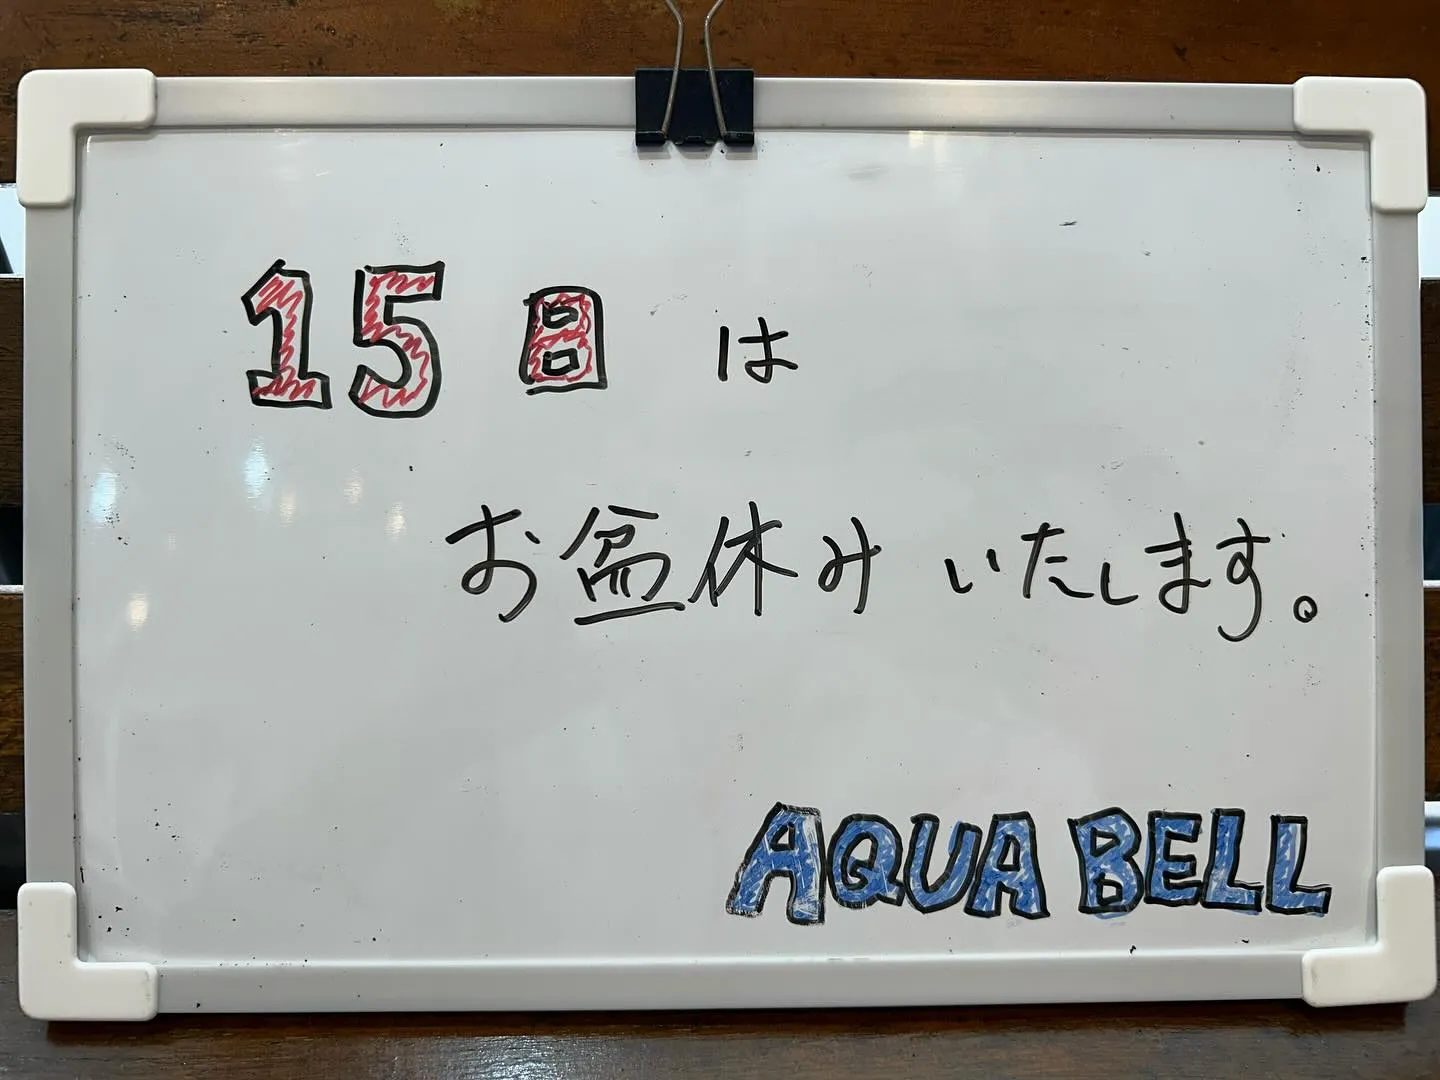 15日は
お盆休みいたします。
AQUA BELL